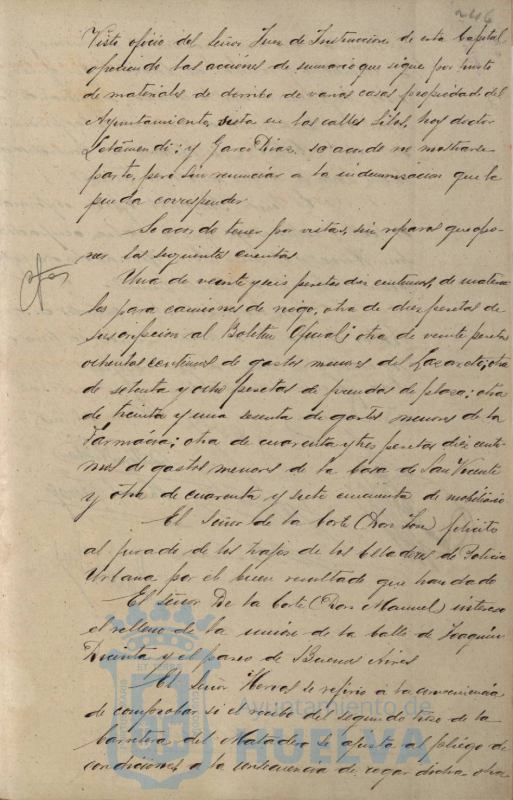 246
Visto oficio del Señor Juez de Instrucción de esta Capital
ofreciendo las acciones de sumario que sigue por hurto
de materiales de derribo de varias casas propiedad del
Ayuntamiento, sita en las calles Silos, hoy doctor
Letamendi; y Garci Diaz, se acordó no mostrarse
parte, pero sin renunciar a la indemnizacion que la
pueda corresponder
Se acordó tener por vistas, sin reparos que opo-
ner las siguientes cuentas
Una de veinte y seis pesetas diez centimos, de materia
les para camiones de riego, otra de diez pesetas de
suscripcion al Boletin Oficial; otra de veinte pesetas
ochenta centimos de gastos menores del Lazareto; otra
de setenta y ocho pesetas de prendas de plaza; otra
de treinta y una sesenta de gastos menores de la
Farmacia; otra de cuarenta y tres pesetas diez centi-
mos de gastos menores de la Casa de San Vicente
y otra de cuarenta y siete cincuenta de mobiliario
El Señor de la Corte (Don José) felicitó
al jurado de los trajes de los Celadores de Policia
Urbana por el buen resultado que han dado
El señor De la Corte (Don Manuel) interesó
el relleno de la unión de la Calle de Joaquín
Dicenta y el paseo de Buenos Aires
El Señor Hervas se refirio a la conveniencia
de comprobar si el recibo del segundo trozo de la
Carretera del Matadero se ajusta al pliego de
condiciones, a la consecuencia de
Ayuntamiento de
HUELVA